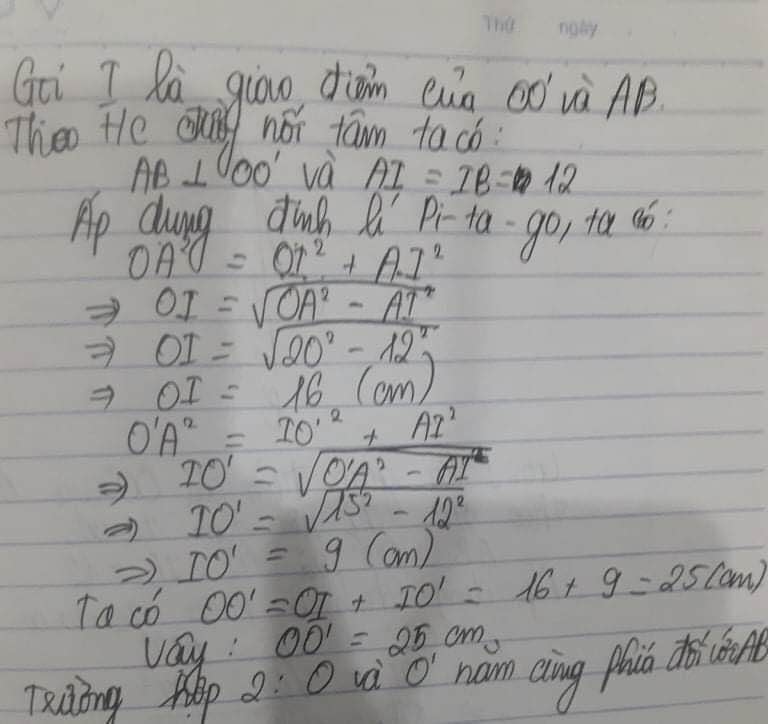 Thứ ngày
Gọi I là giao điểm của OO' và AB.
Theo t/c đường nối tâm ta có:
AB ⊥ OO' và AI = IB = 12
Áp dụng định lí Pi-ta-go, ta có:
OA² = OI² + AI²
⇒ OI = √OA² - AI²
⇒ OI = √20² - 12²
⇒ OI = 16 (cm)
O'A² = IO'² + AI²
⇒ IO' = √O'A² - AI²
⇒ IO' = √15² - 12²
⇒ IO' = 9 (cm)
Ta có OO' = OI + IO' = 16 + 9 = 25 (cm)
Vậy: OO' = 25 cm.
Trường hợp 2: O và O' nằm cùng phía đối với AB